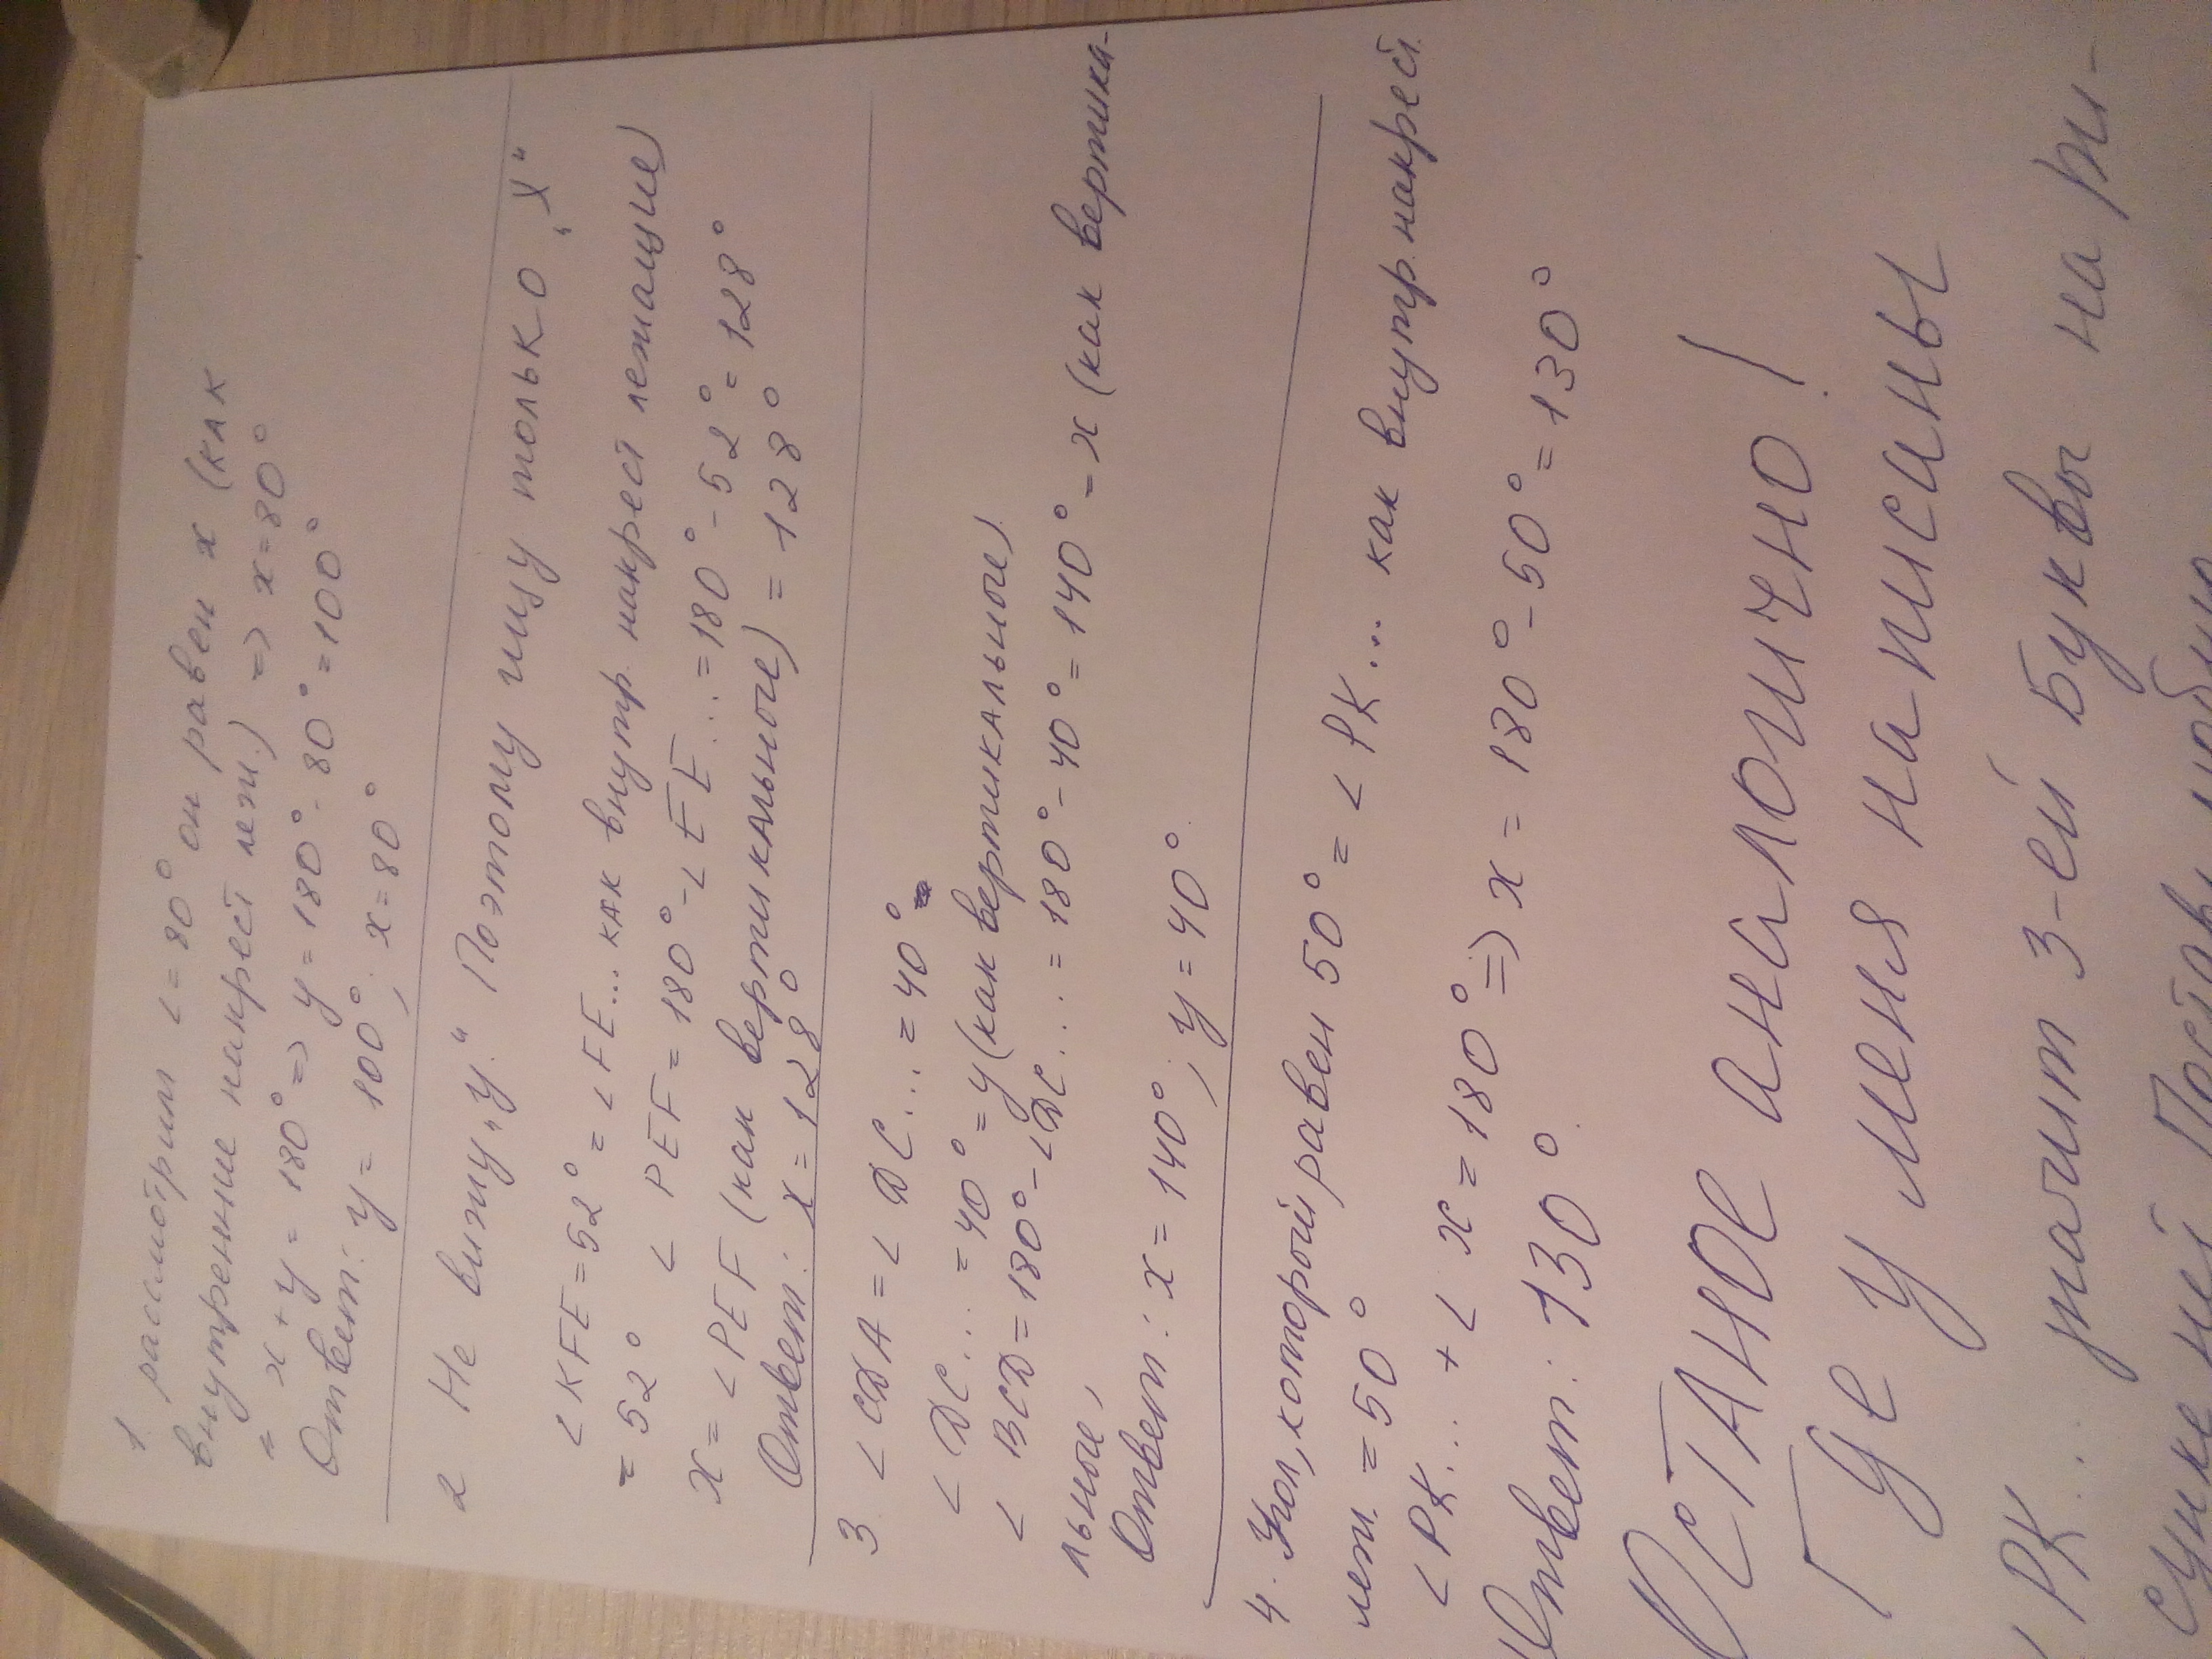 1. рассмотрим ∠=80° он равен x (как
внутренние накрест леж.) => x=80°
∠ x+y = 180° => y = 180°-80°=100°
Ответ: y = 100°; x=80°
2 Не вижу „y“. Поэтому ищу только „X“
∠KFE=52°=∠FE... как внутр. накрест лежащие)
= 52° ∠PEF=180°-∠EF...=180°-52°=128°
x=∠PEF (как вертикальные) = 128°
Ответ: x=128°
3. ∠CDA=∠DC...=40°
∠DC... =40°=y(как вертикальные)
∠BCD=180°-∠DC...=180°-40°=140°=x(как вертика-
льные)
Ответ: x=140°; y=40°.
4. Угол, который равен 50°=∠PK... как внутр. накрест
леж. =50°
∠PK... + ∠x=180° => x=180°-50°=130°
Ответ: 130°.
Остальное аналогично!
Где у меня написаны
∠PK... значит 3-ей буквы на ри-
сунке нет. Поставь любую